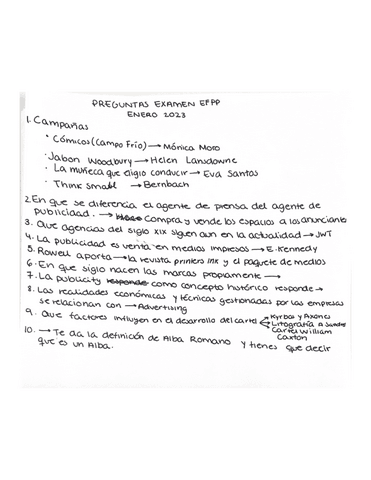 PREGUNTAS EXAMEN EFPP
ENERO 2023
1. Campañas
· Cómicos (Campo Frío) → Mónica Moro
· Jabon Woodbury → Helen Lansdowne
· La muñeca que eligio conducir → Eva Santos
· Think small → Bernbach
2. En que se diferencia el agente de prensa del agente de
publicidad. → Compra y vende los espacios a los anunciante
3. Que agencias del siglo XIX siguen aun en la actualidad → JWT
4. La publicidad es venta en medios impresos → E. Kennedy
5. Rowell aporta → la revista printers ink y el paquete de medios
6. En que siglo nacen las marcas propiamente →
7. La publicity como concepto histórico responde →
8. Las realidades económicas y técnicas gestionadas por las empresas
se relacionan con → Advertising
9. Que factores influyen en el desarrollo del cartel Kyrbos y Axones
Litografía A
Cartel William
Caxton
10. → Te da la definición de Alba Romano y tienes que decir
que es un Alba.